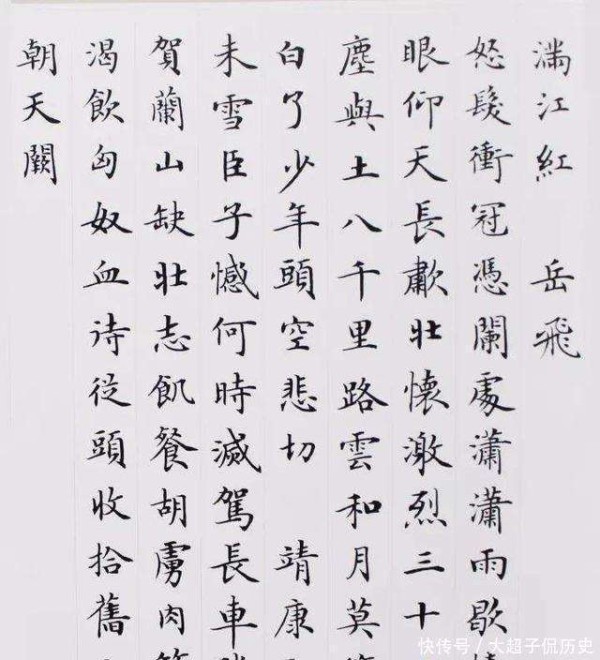 滿江紅 岳飛
怒髮衝冠憑闌處瀟瀟雨歇
眼仰天長歗壯懷激烈三十
塵與土八千里路雲和月莫
白了少年頭空悲切 靖康
未雪臣子憾何時滅駕長車
賀蘭山缺壯志飢餐胡虜肉
渴飲匈奴血待從頭收拾舊
朝天闕
快传号/大超子侃历史